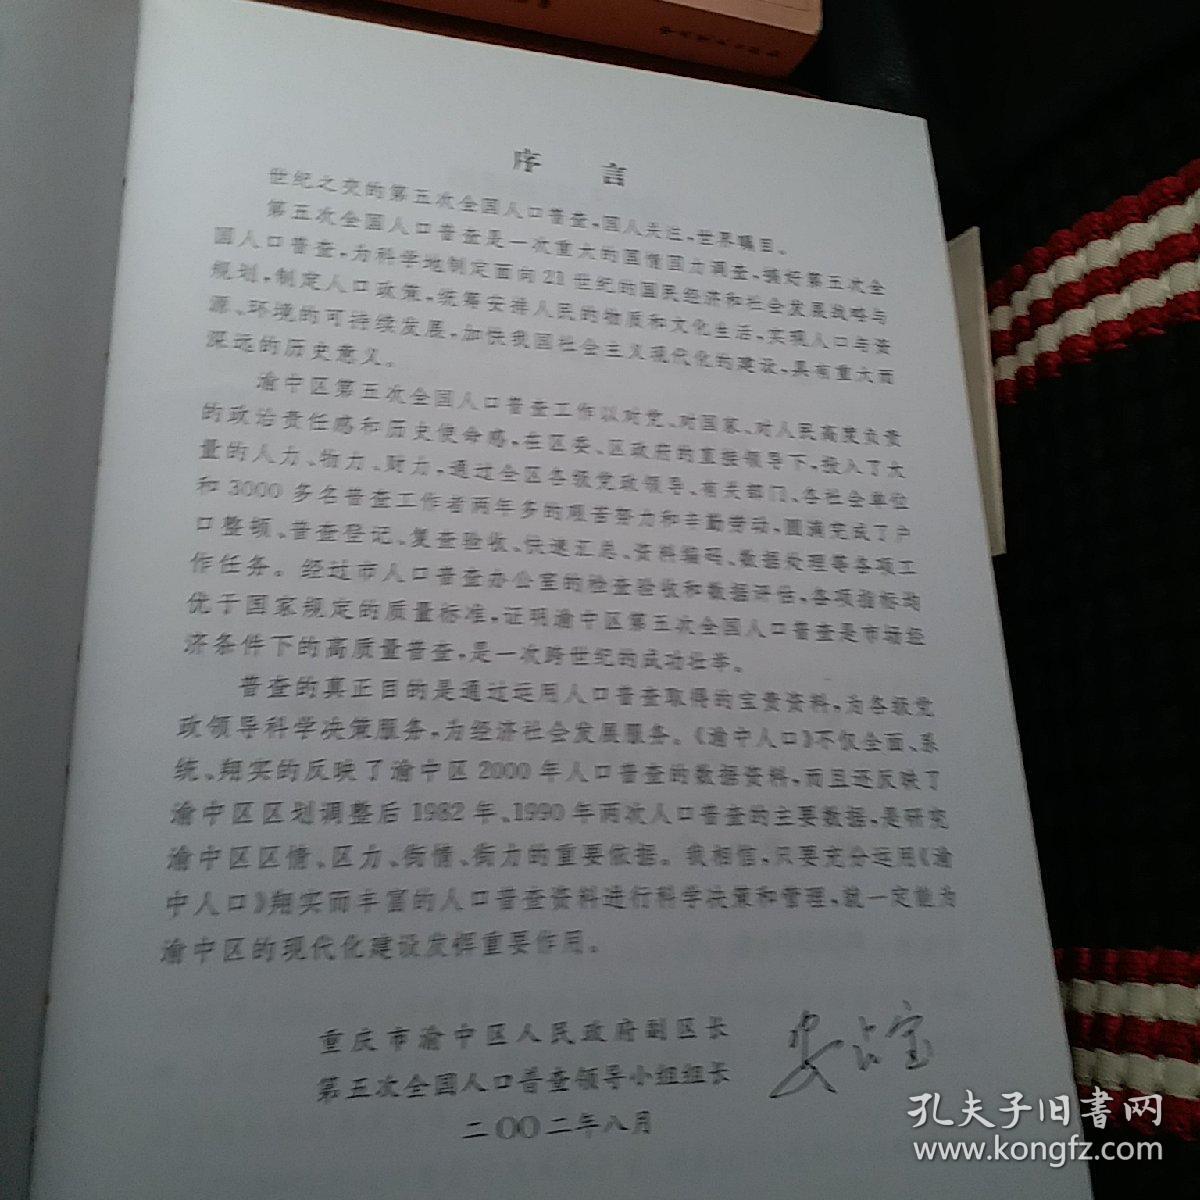 序 言
世纪之交的第五次全国人口普查,国人关注,世界瞩目。
第五次全国人口普查是一次重大的国情国力调查,搞好第五次全
国人口普查,为科学地制定面向21世纪的国民经济和社会发展战略与
规划,制定人口政策,统筹安排人民的物质和文化生活,实现人口与资
源、环境的可持续发展,加快我国社会主义现代化的建设,具有重大而
深远的历史意义。
渝中区第五次全国人口普查工作以对党、对国家、对人民高度负责
的政治责任感和历史使命感,在区委、区政府的直接领导下,投入了大
量的人力、物力、财力,通过全区各级党政领导、有关部门、各社会单位
和3000多名普查工作者两年多的艰苦努力和辛勤劳动,圆满完成了户
口整顿、普查登记、复查验收、快速汇总、资料编码、数据处理等各项工
作任务。经过市人口普查办公室的检查验收和数据评估,各项指标均
优于国家规定的质量标准,证明渝中区第五次全国人口普查是市场经
济条件下的高质量普查,是一次跨世纪的成功壮举。
普查的真正目的是通过运用人口普查取得的宝贵资料,为各级党
政领导科学决策服务,为经济社会发展服务。《渝中人口》不仅全面、系
统、翔实的反映了渝中区2000年人口普查的数据资料,而且还反映了
渝中区区划调整后1982年、1990年两次人口普查的主要数据,是研究
渝中区区情、区力、街情、街力的重要依据。我相信,只要充分运用《渝
中人口》翔实而丰富的人口普查资料进行科学决策和管理,就一定能为
渝中区的现代化建设发挥重要作用。
重庆市渝中区人民政府副区长
第五次全国人口普查领导小组组长
二〇〇二年八月
孔夫子旧書网
www.kongfz.com